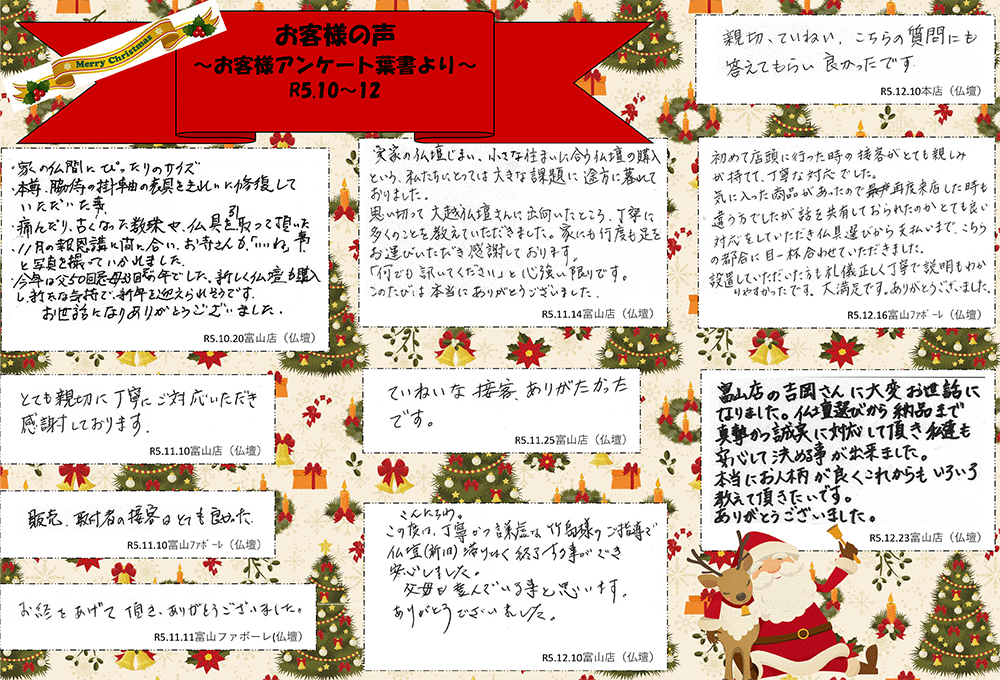 Merry Christmas
お客様の声
～お客様アンケート葉書より～
R5.10～12
・家の仏間にぴったりのサイズ
・本尊、脇侍の掛軸の表具をきれいに修復して
いただいた事
・痛んだり、古くなった教本や、仏具を引取って頂いた事
・11月の報恩講に間に合い、お寺さんが、「いいね」
と写真を撮っていかれました。
・今年は父50回忌母33回忌の年でした。新しく仏壇も購入
し、新たな気持で、新年を迎えられそうです。
お世話になりありがとうございました。
R5.10.20富山店（仏壇）
とても親切に丁寧にご対応いただき
感謝しております。
R5.11.10富山店（仏壇）
販売、取付者の接客はとても良かった。
R5.11.10富山ﾌｧﾎﾞｰﾚ（仏壇）
お経をあげて頂き、ありがとうございました。
R5.11.11富山ファボーレ(仏壇）
実家の仏壇じまい、小さな住まいに合う仏壇の購入
という、私たちにとっては大きな課題に途方に暮れて
おりました。
思い切って大越仏壇さんに出向いたところ、丁寧に
多くのことを教えていただきました。家にも何度も足を
お運びいただき感謝しております。
「何でも訊いてください」と心強い限りです。
このたびは本当にありがとうございました。
R5.11.14富山店（仏壇）
ていねいな接客、ありがたかった
です。
R5.11.25富山店（仏壇）
こんにちわ。
この度は、丁寧かつ謙虚な竹島様のご指導で
仏壇(新旧)滞りなく終了する事ができ
安心しました。
父母も喜んでいる事と思います。
ありがとうございました。
R5.12.10富山店（仏壇）
親切、ていねい、こちらの質問にも
答えてもらい良かったです。
R5.12.10本店（仏壇）
初めて店頭に行った時の接客がとても親しみ
が持て、丁寧な対応でした。
気に入った商品があったので再度来店した時も
違う方でしたが話を共有しておられたのかとても良い
対応をしていただき仏具選びから支払いまで、こちら
の都合に目一杯合わせていただきました。
設置していただいた方も礼儀正しく丁寧で説明もわか
りやすかったです。大満足です。ありがとうございました。
R5.12.16富山ﾌｧﾎﾞｰﾚ（仏壇）
富山店の吉岡さんに大変お世話に
なりました。仏壇選びから納品まで
真摯かつ誠実に対応して頂き私達も
安心して決める事が出来ました。
本当にお人柄が良くこれからもいろいろ
教えて頂きたいです。
ありがとうございました。
R5.12.23富山店（仏壇）